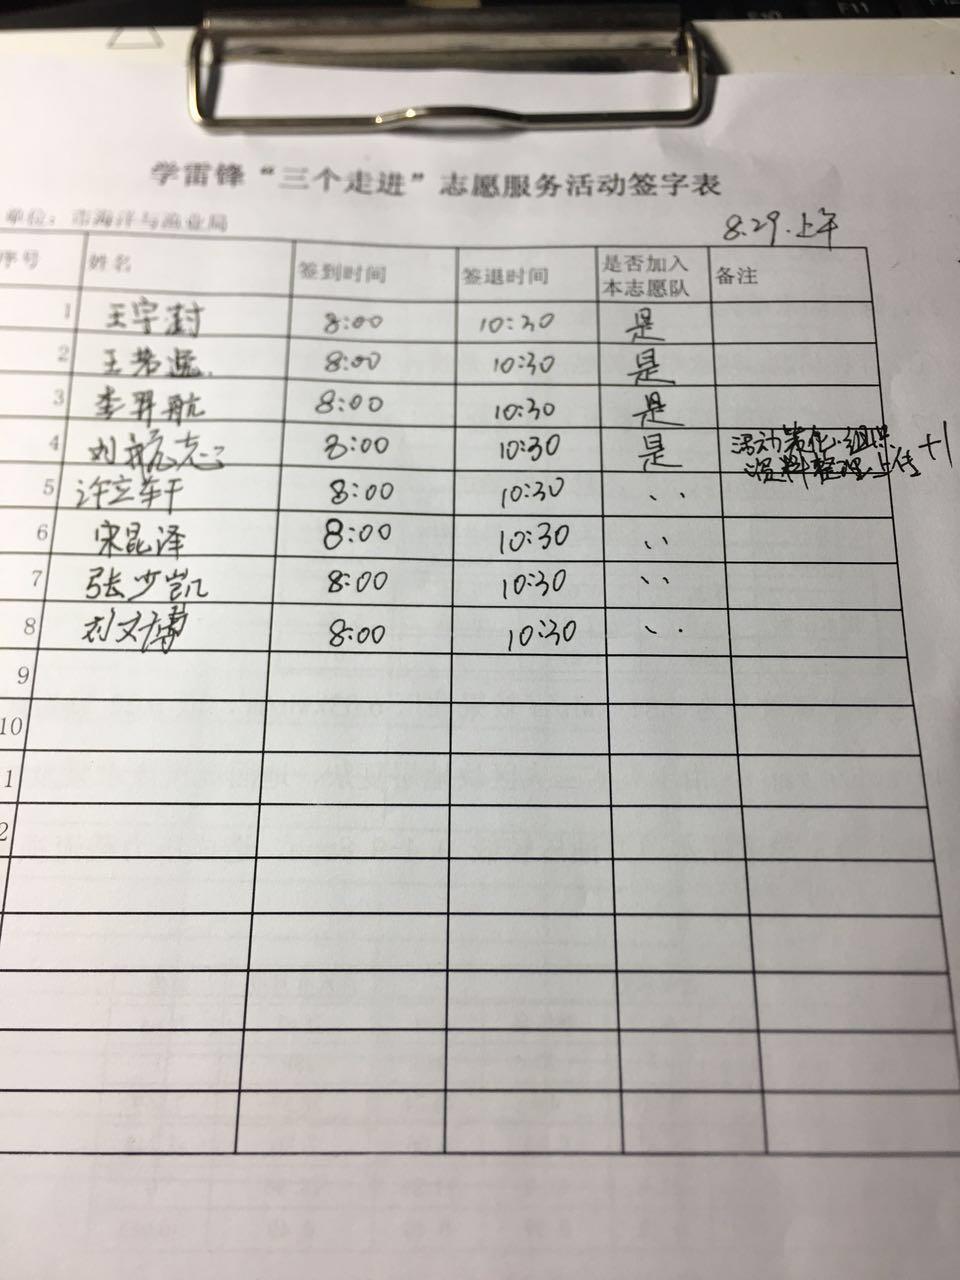 学雷锋“三个走进”志愿服务活动签字表
单位：市海洋与渔业局
8.29.上午
序号 姓名 签到时间 签退时间 是否加入本志愿队 备注
1 王宇澍 8:00 10:30 是
2 王 8:00 10:30 是
3 李羿航 8:00 10:30 是
4 刘航志 8:00 10:30 是 活动 组织 资料整理上传 +1
5 许 8:00 10:30 、、
6 宋昆泽 8:00 10:30 、、
7 张少凯 8:00 10:30 、、
8 刘文博 8:00 10:30 、、
9
10
1
2